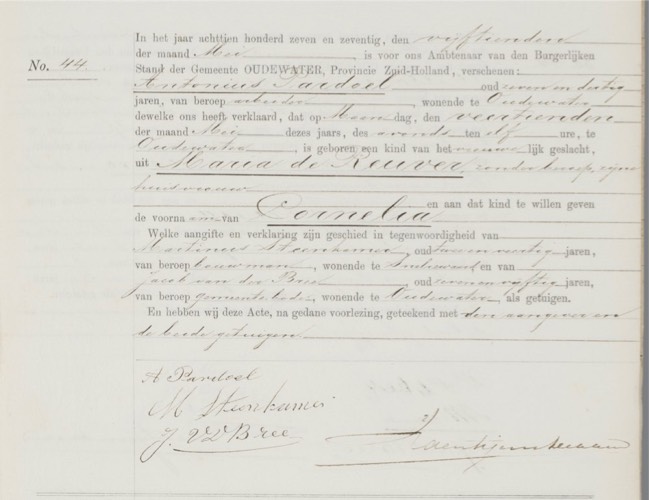 In het jaar achttien honderd zeven en zeventig, den vijftienden
der maand Mei, is voor ons Ambtenaar van den Burgerlijken
No. 44. Stand der Gemeente OUDEWATER, Provincie Zuid-Holland, verschenen:
Antonius Pardoel oud zeven en dertig
jaren, van beroep arbeider, wonende te Oudewater
dewelke ons heeft verklaard, dat op Maandag, den veertienden
der maand Mei dezes jaars, des avonds ten elf ure, te
Oudewater, is geboren een kind van het vrouwelijk geslacht,
uit Maria de Reuver, zonder beroep, zijne
huisvrouw
en aan dat kind te willen geven
de voorna am van Cornelia
Welke aangifte en verklaring zijn geschied in tegenwoordigheid van
Martinus Steenkamer, oud twee en veertig jaren,
van beroep bouwman, wonende te en van
Jacob van der Bree, oud zeven en vijftig jaren,
van beroep gemeentebode, wonende te Oudewater, als getuigen.
En hebben wij deze Acte, na gedane voorlezing, geteekend met den aangever en
de beide getuigen.
A Pardoel
M Steenkamer
J. VD Bree